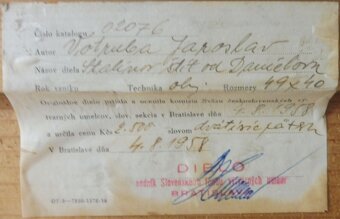 Číslo katalogu 02076
Autor Votruba Jaroslav
Názov diela Skalinor štít od
Rok vzniku Technika olej Rozmery 49×40
Originálne dielo prijala a ocenila komisia Sväzu československých
tvarných umelcov, slov. sekcia v Bratislave dňa 4.8.1958
a určila cenu Kčs 2.500 slovom
V Bratislave dňa 4.8.1958
DIELO
podnik Slovenského fondu výtvarných umení
BRATISLAVA